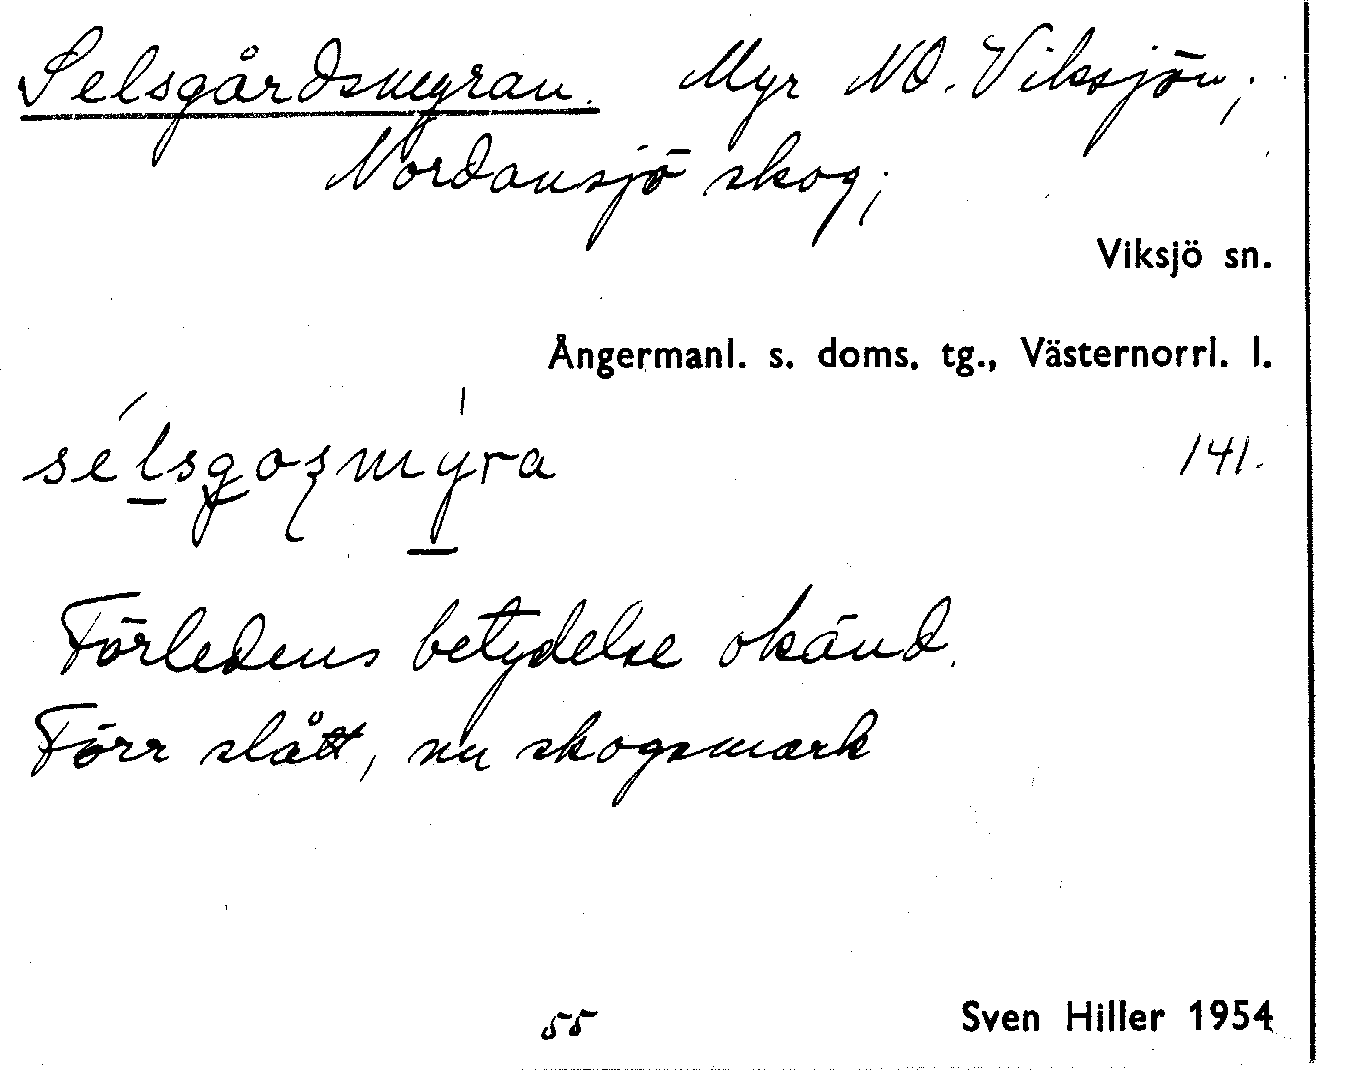 Selsgårdsmyran. Myr NO. Viksjön;
Nordansjö skog;
Viksjö sn.
Ångermanl. s. doms. tg., Västernorrl. l.
141.
Förledens betydelse okänd.
Förr slått, nu skogsmark
55
Sven Hiller 1954